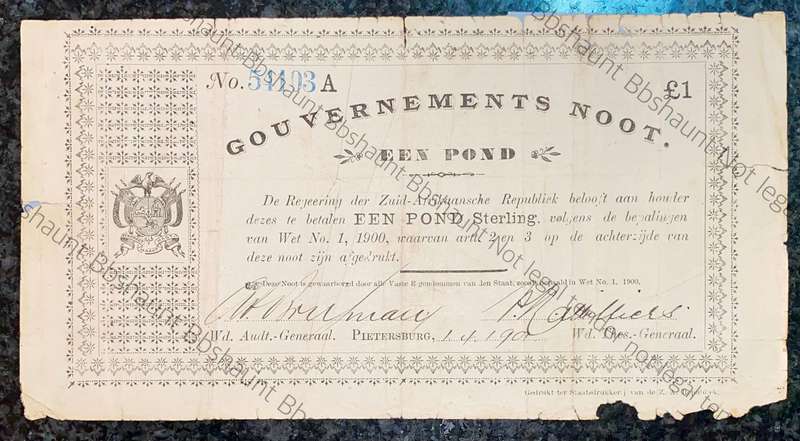 No. 54103 A
£1
GOUVERNEMENTS NOOT.
EEN POND
De Regeering der Zuid-Afrikaansche Republiek belooft aan houder
dezes te betalen EEN POND Sterling, volgens de bepalingen
van Wet No. 1, 1900, waarvan artt. 2 en 3 op de achterzijde van
deze noot zijn afgedrukt.
Deze Noot is gewaarborgd door alle Vaste Eigendommen van den Staat, zooals bepaald in Wet No. 1, 1900.
Wd. Audt.-Generaal. PIETERSBURG, 1 4 190 Wd. Thes.-Generaal.
Gedrukt ter Staatsdrukkerij van de Z. A. Republiek.
Bbshaunt Not legal tender